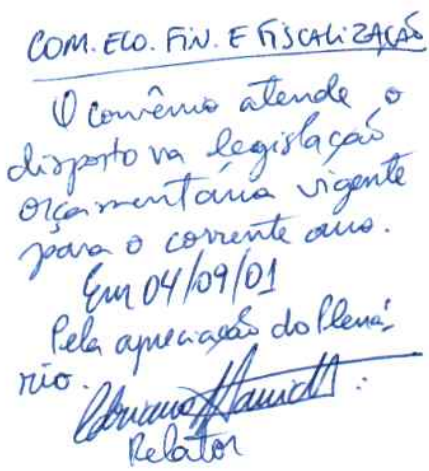 COM. ECO. FIN. E FISCALIZAÇÃO
O convênio atende o
disposto na legislação
orçamentária vigente
para o corrente ano.
Em 04/09/01
Pela apreciação do Plená-
rio.
Relator